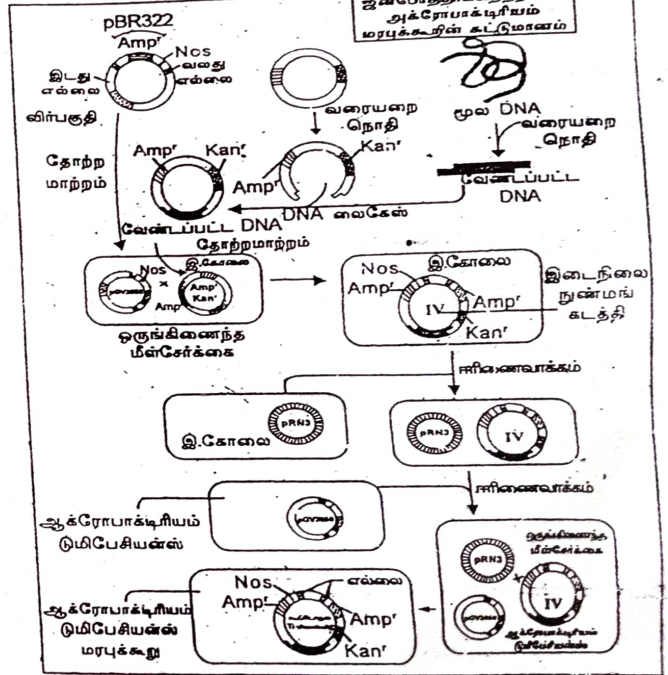 அக்ரோபாக்டிரியம்
மரபுக்கூறின் கட்டுமானம்
pBR322
Ampʳ
Nos
வலது
எல்லை
இடது
எல்லை
விர்பகுதி
வரையறை
நொதி
மூல DNA
வரையறை
நொதி
தோற்ற
மாற்றம்
Ampʳ
Kanʳ
Ampʳ
Kanʳ
வேண்டப்பட்ட
DNA
DNA லைகேஸ்
வேண்டப்பட்ட DNA
தோற்றமாற்றம்
இ.கோலை
Nos
Ampʳ
Kanʳ
Amp
ஒருங்கிணைந்த
மீள்சேர்க்கை
இ.கோலை
Nos
Ampʳ
IV
Ampʳ
Kanʳ
இடைநிலை
நுண்மங்
கடத்தி
ஈரிணைவாக்கம்
pRN3
இ.கோலை
pRN3
IV
ஈரிணைவாக்கம்
ஆக்ரோபாக்டிரியம்
டுமிபேசியன்ஸ்
ஒருங்கிணைந்த
மீள்சேர்க்கை
pRN3
IV
ஆக்ரோபாக்டிரியம்
டுமிபேசியன்ஸ்
Nos
எல்லை
Ampʳ
Ampʳ
Kanʳ
ஆக்ரோபாக்டிரியம்
டுமிபேசியன்ஸ்
மரபுக்கூறு